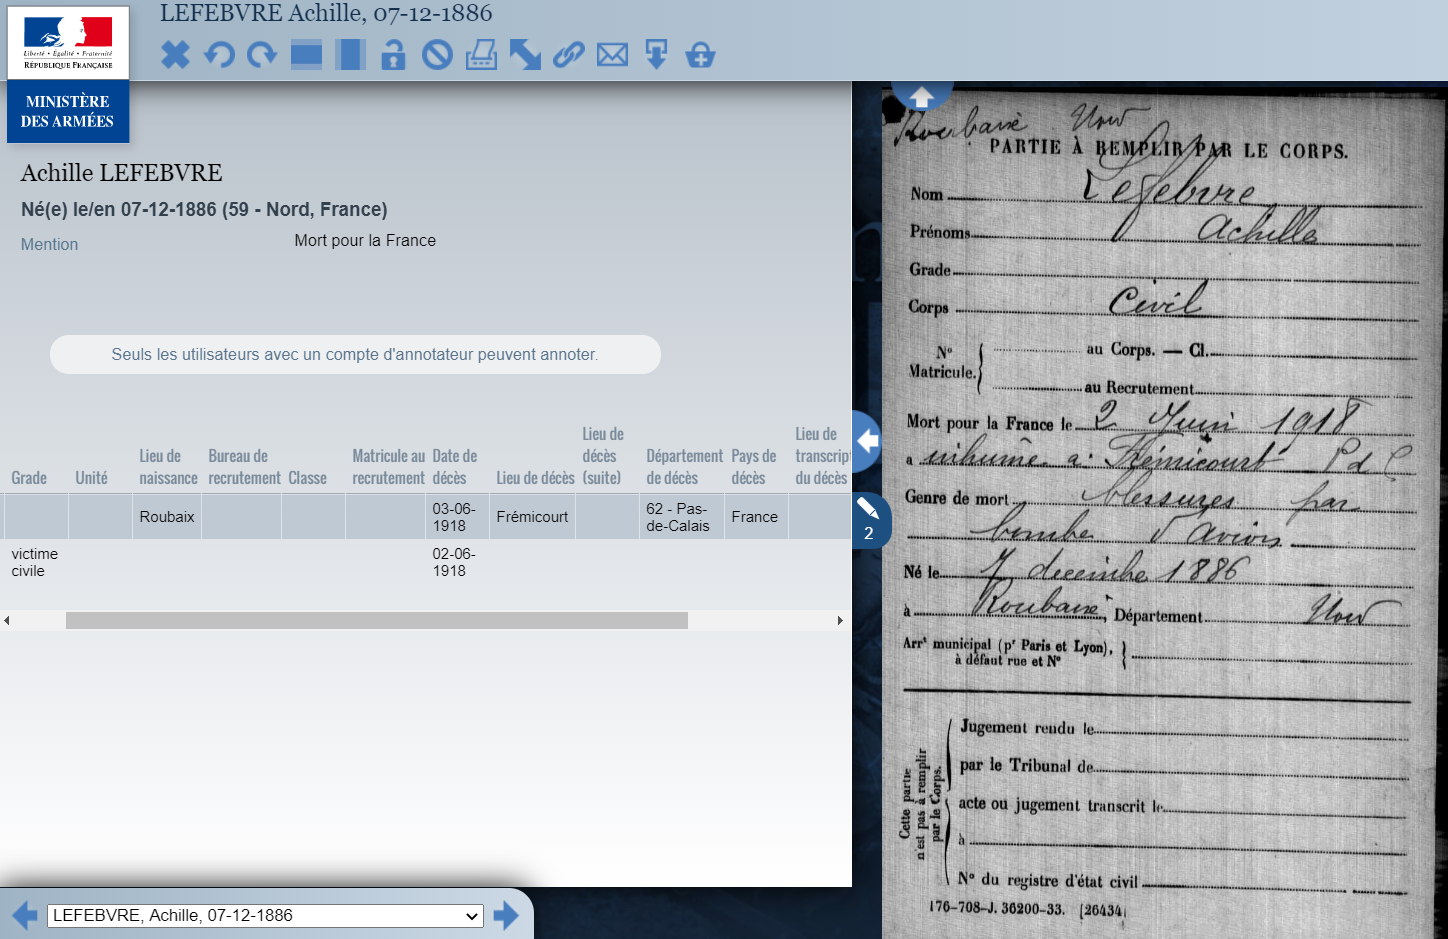 LEFEBVRE Achille, 07-12-1886
Liberté • Égalité • Fraternité
RÉPUBLIQUE FRANÇAISE
MINISTÈRE
DES ARMÉES
Achille LEFEBVRE
Né(e) le/en 07-12-1886 (59 - Nord, France)
Mention Mort pour la France
Seuls les utilisateurs avec un compte d'annotateur peuvent annoter.
Grade Unité Lieu de naissance Bureau de recrutement Classe Matricule au recrutement Date de décès Lieu de décès Lieu de décès (suite) Département de décès Pays de décès Lieu de transcript du décès
Roubaix 03-06-1918 Frémicourt 62 - Pas-de-Calais France
victime civile 02-06-1918
2
LEFEBVRE, Achille, 07-12-1886
Roubaix Nord
PARTIE À REMPLIR PAR LE CORPS.
Nom Lefebvre
Prénoms Achille
Grade
Corps Civil
N° Matricule. au Corps. — Cl.
au Recrutement
Mort pour la France le 2 Juin 1918
a inhumé a Frémicourt P d C
Genre de mort blessures par
bombe d'avions
Né le 7 decembre 1886
à Roubaix, Département Nord
Arrt municipal (pr Paris et Lyon),
à défaut rue et N°
Cette partie
n'est pas à remplir
par le Corps.
Jugement rendu le
par le Tribunal de
acte ou jugement transcrit le
à
N° du registre d'état civil
176-708-J. 36200-33. [26434]